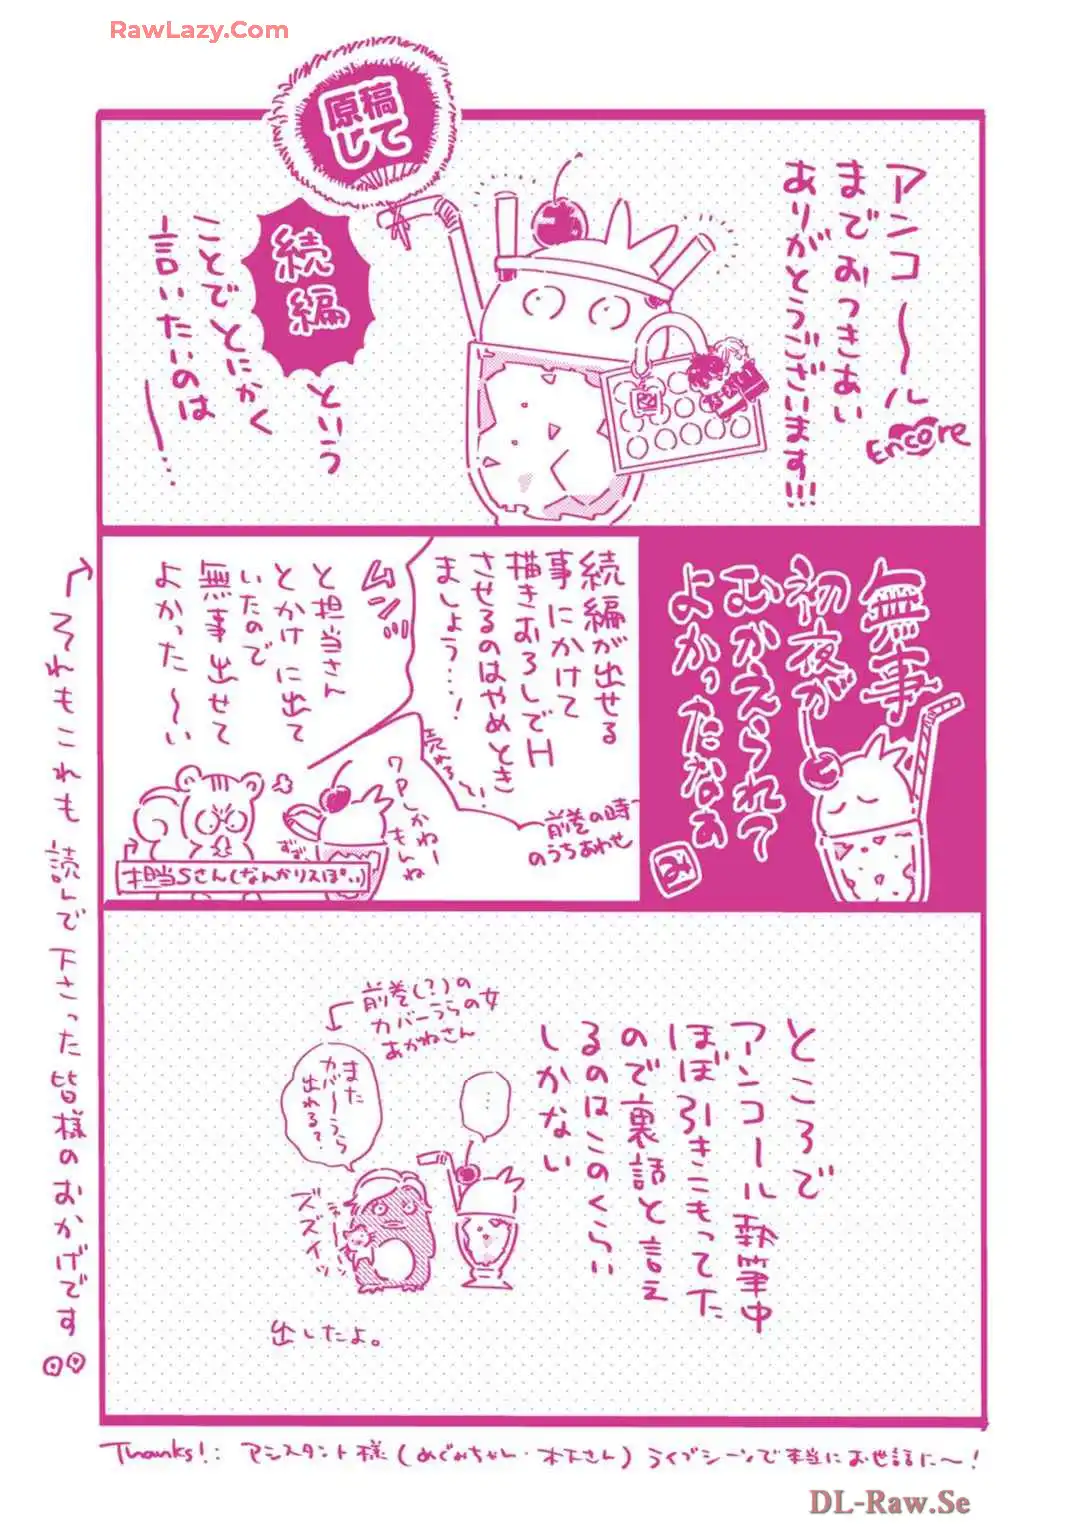 RawLazy.Com
アンコ〜〜ル
までおつきあい
ありがとうございます!!!
Encore
原稿
して
続
編
という
ことでとにかく
言いたいのは
—…
無事
初夜が
むかえられて
よかったなぁ
み
続編が出せる
事にかけて
描きおろしでH
させるのはやめとき
ましょう…!
売れろ〜い
前巻の時
のうちあわせ
ムンッ
と担当さん
とかけに出て
いたので
無事出せて
よかった〜〜い
担当Sさん(なんかリスぽい)
それもこれも読んで下さった皆様のおかげです
ところで
アンコール執筆中
ほぼ引きこもってた
ので裏話と言え
るのはこのくらい
しかない
前巻(?)の
カバーうらの女
あかねさん
…
また
カバーうら
出れる?
ズズイッ
出したよ。
Thanks!: アシスタント様(めぐみちゃん・木下さん)ライブシーンで本当にお世話に〜!
DL-Raw.Se